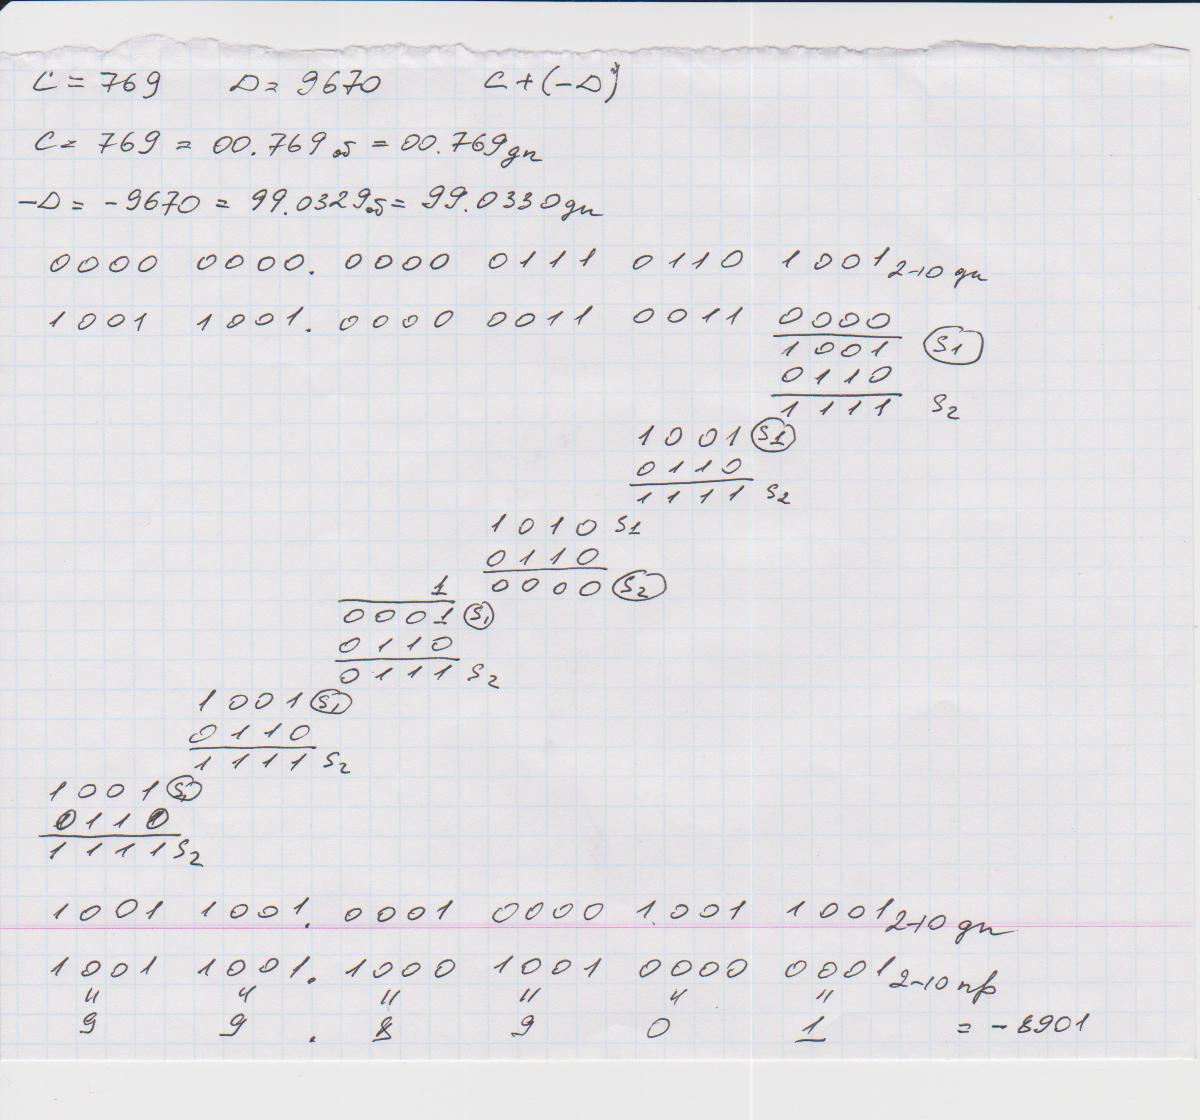 C = 769 D = 9670 C + (-D)
C = 769 = 00.769 об = 00.769 дп
-D = -9670 = 99.0329 об = 99.0330 дп
0000 0000. 0000 0111 0110 1001 2-10 дп
1001 1001. 0000 0011 0011 0000
1001 S1
0110
1111 S2
1001 S1
0110
1111 S2
1010 S1
0110
0000 S2
1
0001 S1
0110
0111 S2
1001 S1
0110
1111 S2
1001 S1
0110
1111 S2
1001 1001. 0001 0000 1001 1001 2-10 дп
1001 1001. 1000 1001 0000 0001 2-10 пр
" " " " " "
9 9 . 8 9 0 1 = -8901